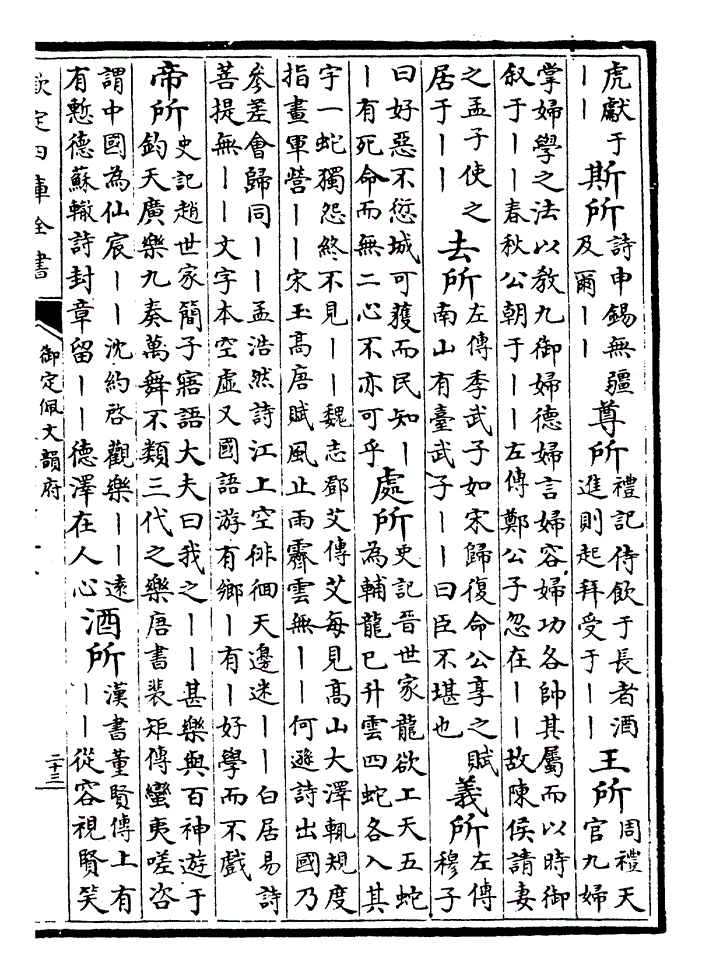 虎獻于
｜｜
斯所
詩申錫無疆
及爾｜｜
尊所
禮記侍飲于長者酒
進則起拜受于｜｜
王所
周禮天
官九婦
掌婦學之法以教九御婦德婦言婦容婦功各帥其屬而以時御
叙于｜｜春秋公朝于｜｜左傳鄭公子忽在｜｜故陳侯請妻
之孟子使之
居于｜｜
去所
左傳季武子如宋歸復命公享之賦
南山有臺武子｜｜曰臣不堪也
義所
左傳
穆子
曰好惡不愆城可獲而民知｜
｜有死命而無二心不亦可乎
處所
史記晉世家龍欲上天五蛇
為輔龍已升雲四蛇各入其
宇一蛇獨怨終不見｜｜魏志鄧艾傳艾每見高山大澤輒規度
指畫軍營｜｜宋玉高唐賦風止雨霽雲無｜｜何遜詩出國乃
參差會歸同｜｜孟浩然詩江上空徘徊天邊迷｜｜白居易詩
菩提無｜｜文字本空虛又國語游有鄉｜有｜好學而不戲
帝所
史記趙世家簡子寤語大夫曰我之｜｜甚樂與百神遊于
鈞天廣樂九奏萬舞不類三代之樂唐書裴矩傳蠻夷嗟咨
謂中國為仙宸｜｜沈約啓觀樂｜｜遠
有慙德蘇轍詩封章留｜｜德澤在人心
酒所
漢書董賢傳上有
｜｜從容視賢笑
欽定四庫全書
御定佩文韻府
二十三